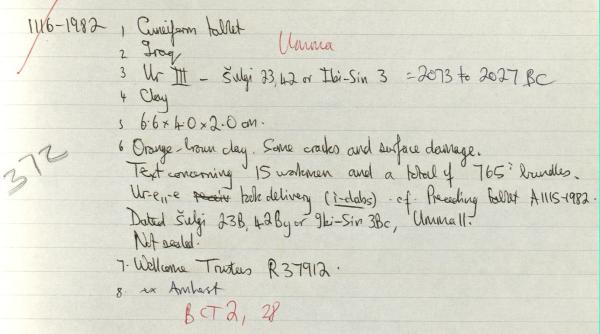 1116-1982 1 Cuneiform tablet
2 Iraq Umma
3 Ur III - Šulgi 23, 42 or Ibi-Sin 3 = 2073 to 2027 BC
4 Clay
5 6.6 x 4.0 x 2.0 cm.
6 Orange-brown clay. Some cracks and surface damage.
Text concerning 15 workmen and a total of 765? bundles.
Ur-e₁₁-e took delivery (ì-dab₅) cf. Preceding tablet A1115-1982.
Dated Šulgi 23B, 42By or Ibi-Sin 3Bc, Umma II.
Not sealed.
7. Wellcome Trustees R37912.
8. ex Amherst
BCT 2, 28
372